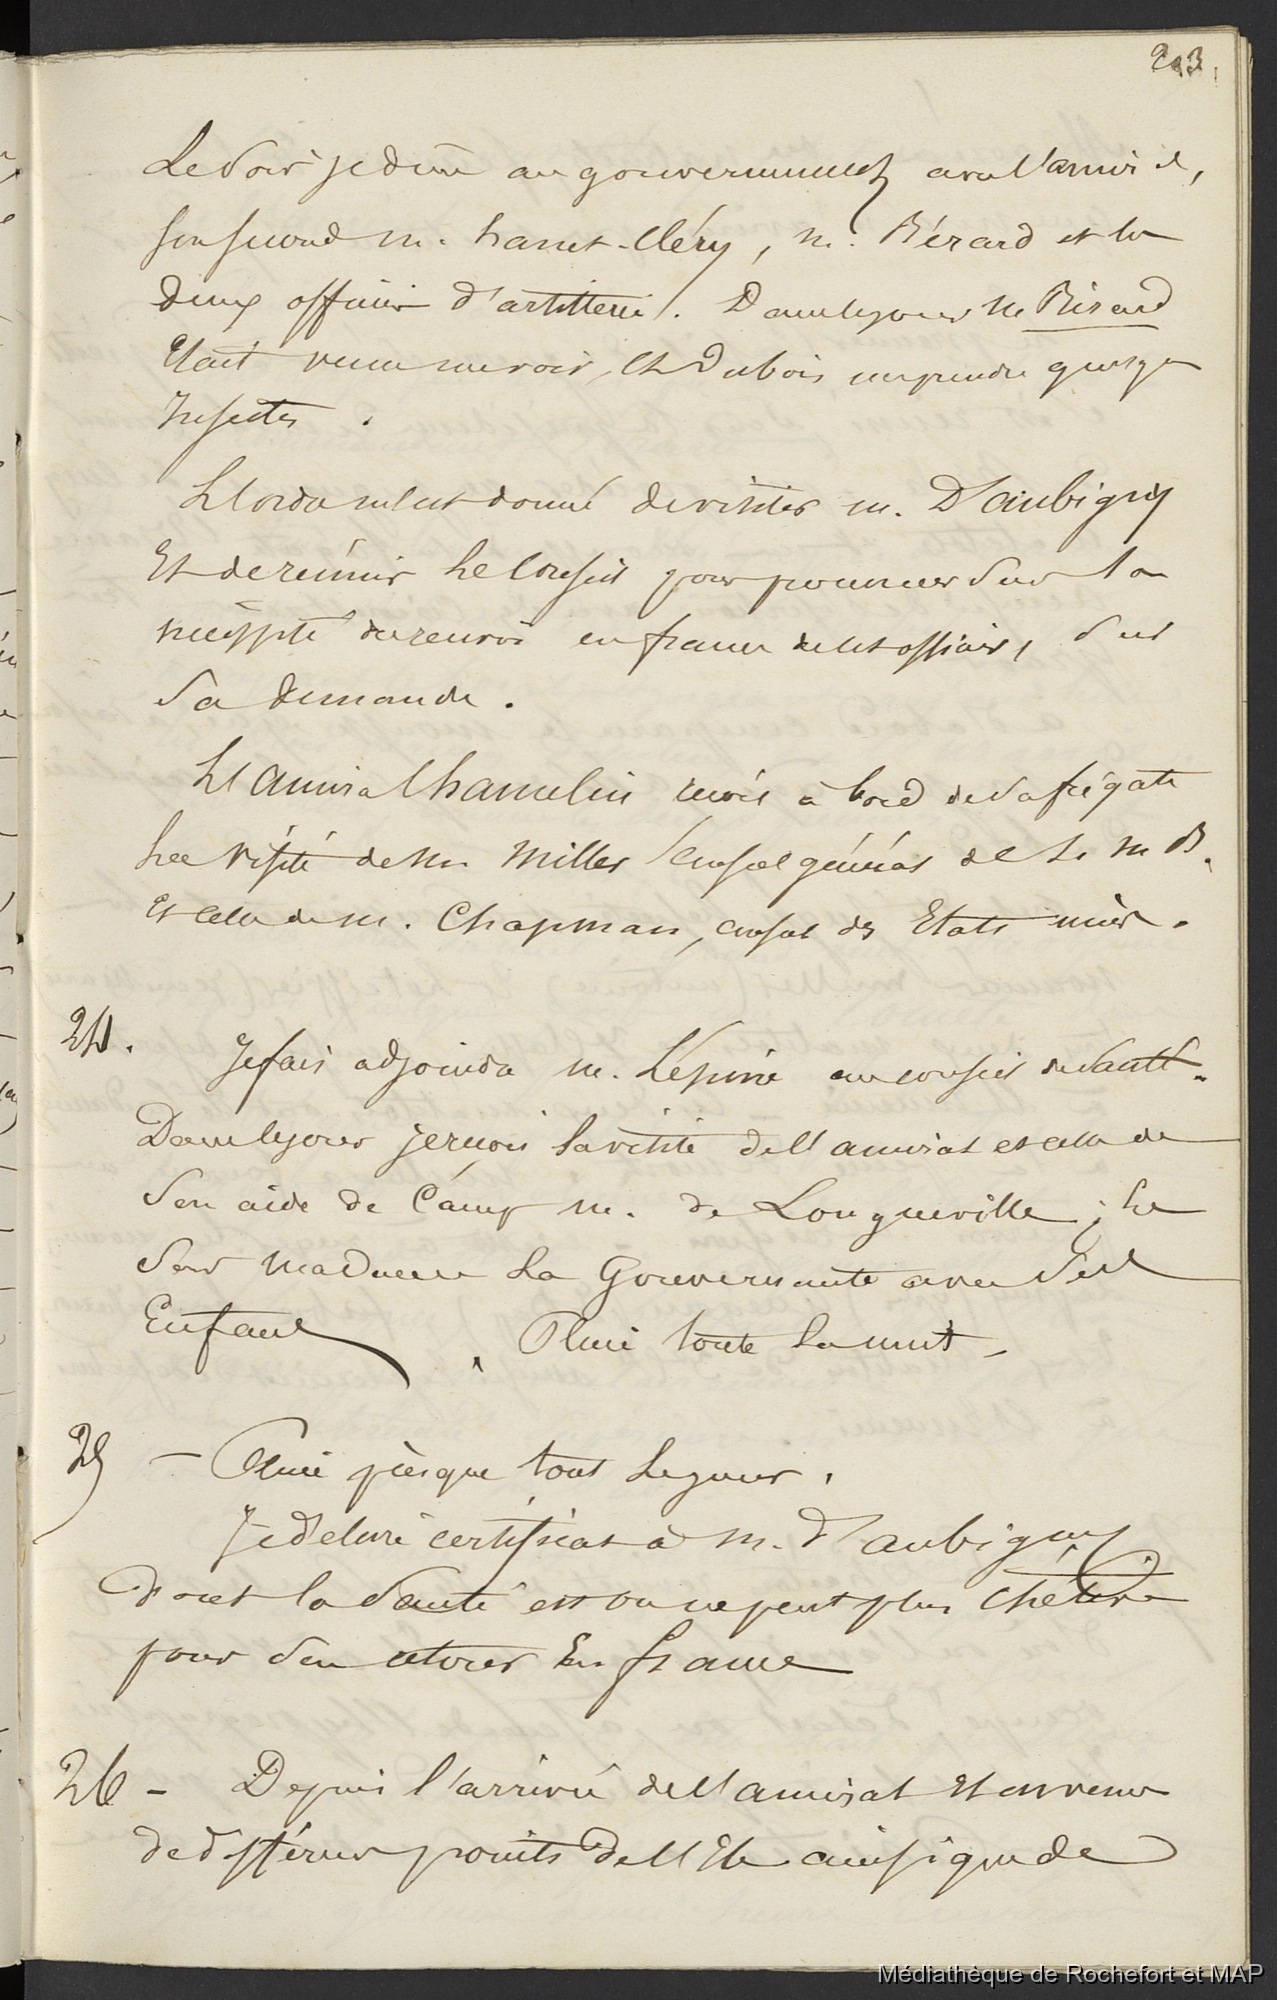 213
Le soir je dine au gouvernement avec l'amiral,
son second m. hanet-Cléry, m. Bérard et les
deux officiers d'artillerie. Dans le jour M Bérard
Etait venu me voir, Et Dubois me prendre quelques
Insectes.
L'ordre m'est donné de visiter m. D'aubigny
Et de réunir Le Conseil pour prononcer sur la
nécessité du renvoi en france de cet officier, sur
Sa demande.
L'amiral hamelin reçoit à bord de sa frégate
La visite de M Miller Consul général de S. M B.
Et celle de M. Chapman, consul des Etats unis.
24. Je fais adjoindre m. Lépine au conseil de santé.
Dans le jour je reçois la visite de l'amiral et celle de
Son aide de Camp m. de Longueville; le
Soir Madame La Gouvernante avec Ses
Enfans. Pluie toute la nuit.
25 - Pluie presque tout le jour.
Je délivre certificat à m. d'aubigny
dont la Santé est on ne peut plus chétive
pour s'en retourner En france
26 - Depuis l'arrivée de l'amiral Il en venu
de différens points de l'Ile ainsi que de
Médiathèque de Rochefort et MAP